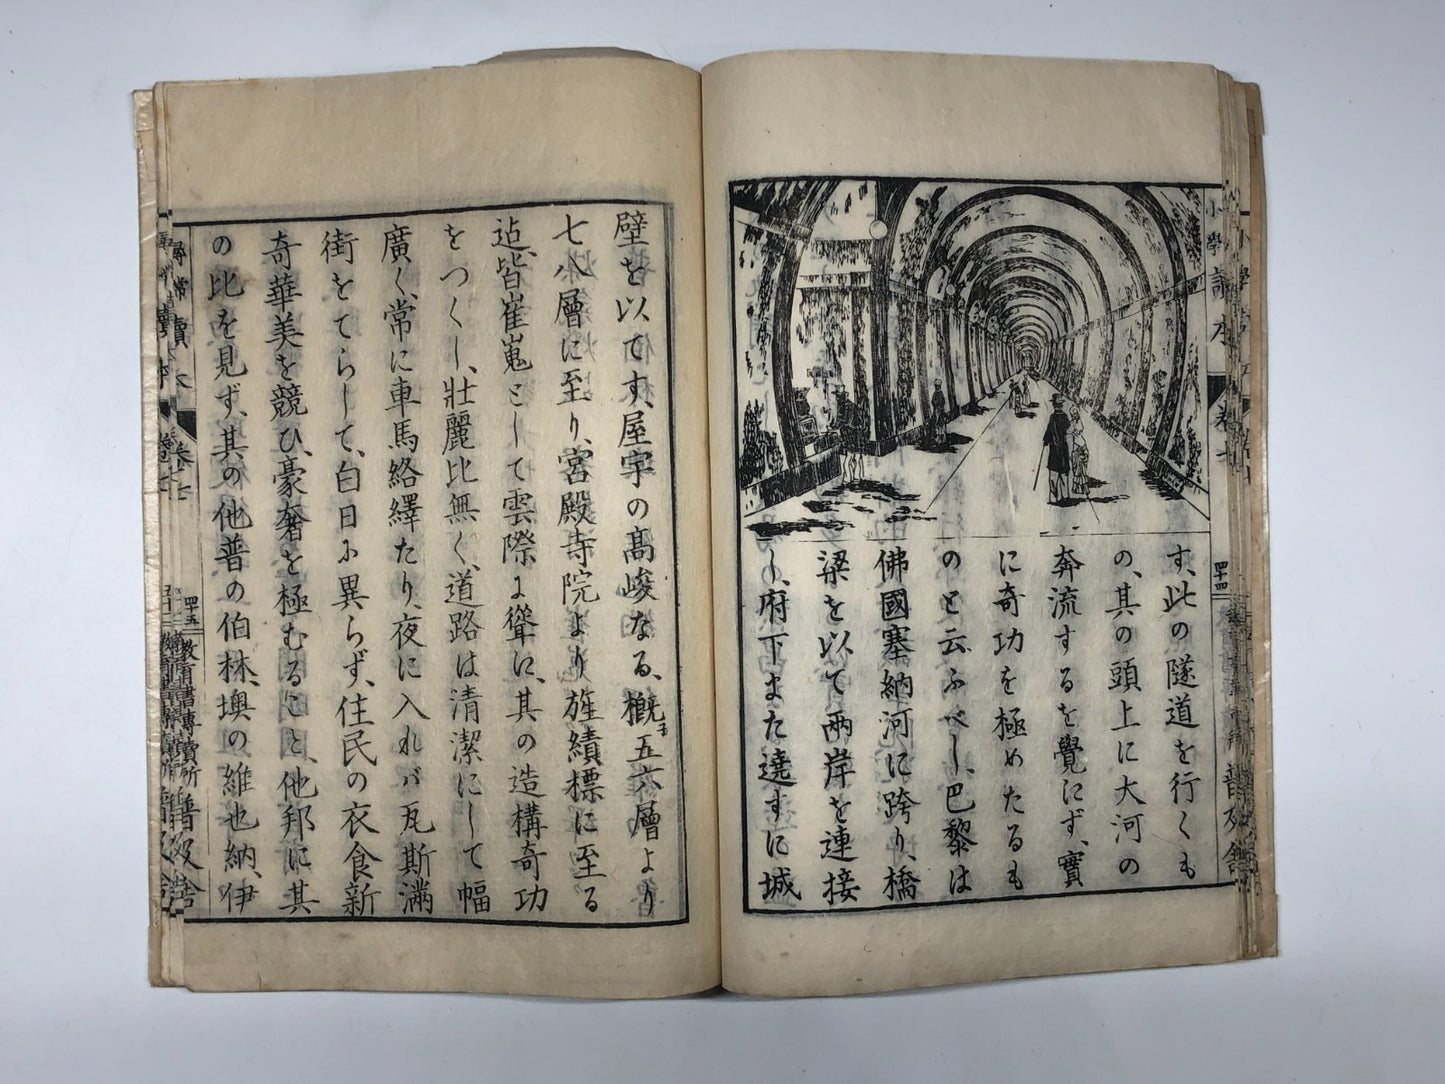 小學讀本
卷七
四十四
普及舍
す、此の隧道を行くも
の、其の頭上に大河の
奔流するを覺にず、實
に奇功を極めたるも
のと云ふべし、巴黎は
佛國塞納河に跨り、橋
梁を以て兩岸を連接
し、府下また遶すに城
壁を以てす、屋宇の髙峻なる、概子五六層より
七八層に至り、宮殿寺院より旌績標に至る
迠、皆崔嵬として雲際よ聳に、其の造構奇功
をつくし、壯麗比無く、道路は清潔にして幅
廣く、常に車馬絡繹たり、夜に入れバ瓦斯滿
街をてらして、白日に異らず、住民の衣食新
奇華美を競ひ、豪奢を極むること、他邦に其
の比を見ず、其の他普の伯林、墺の維也納、伊
尋常讀本
卷七
四十五
教育書專賣所
普及舍